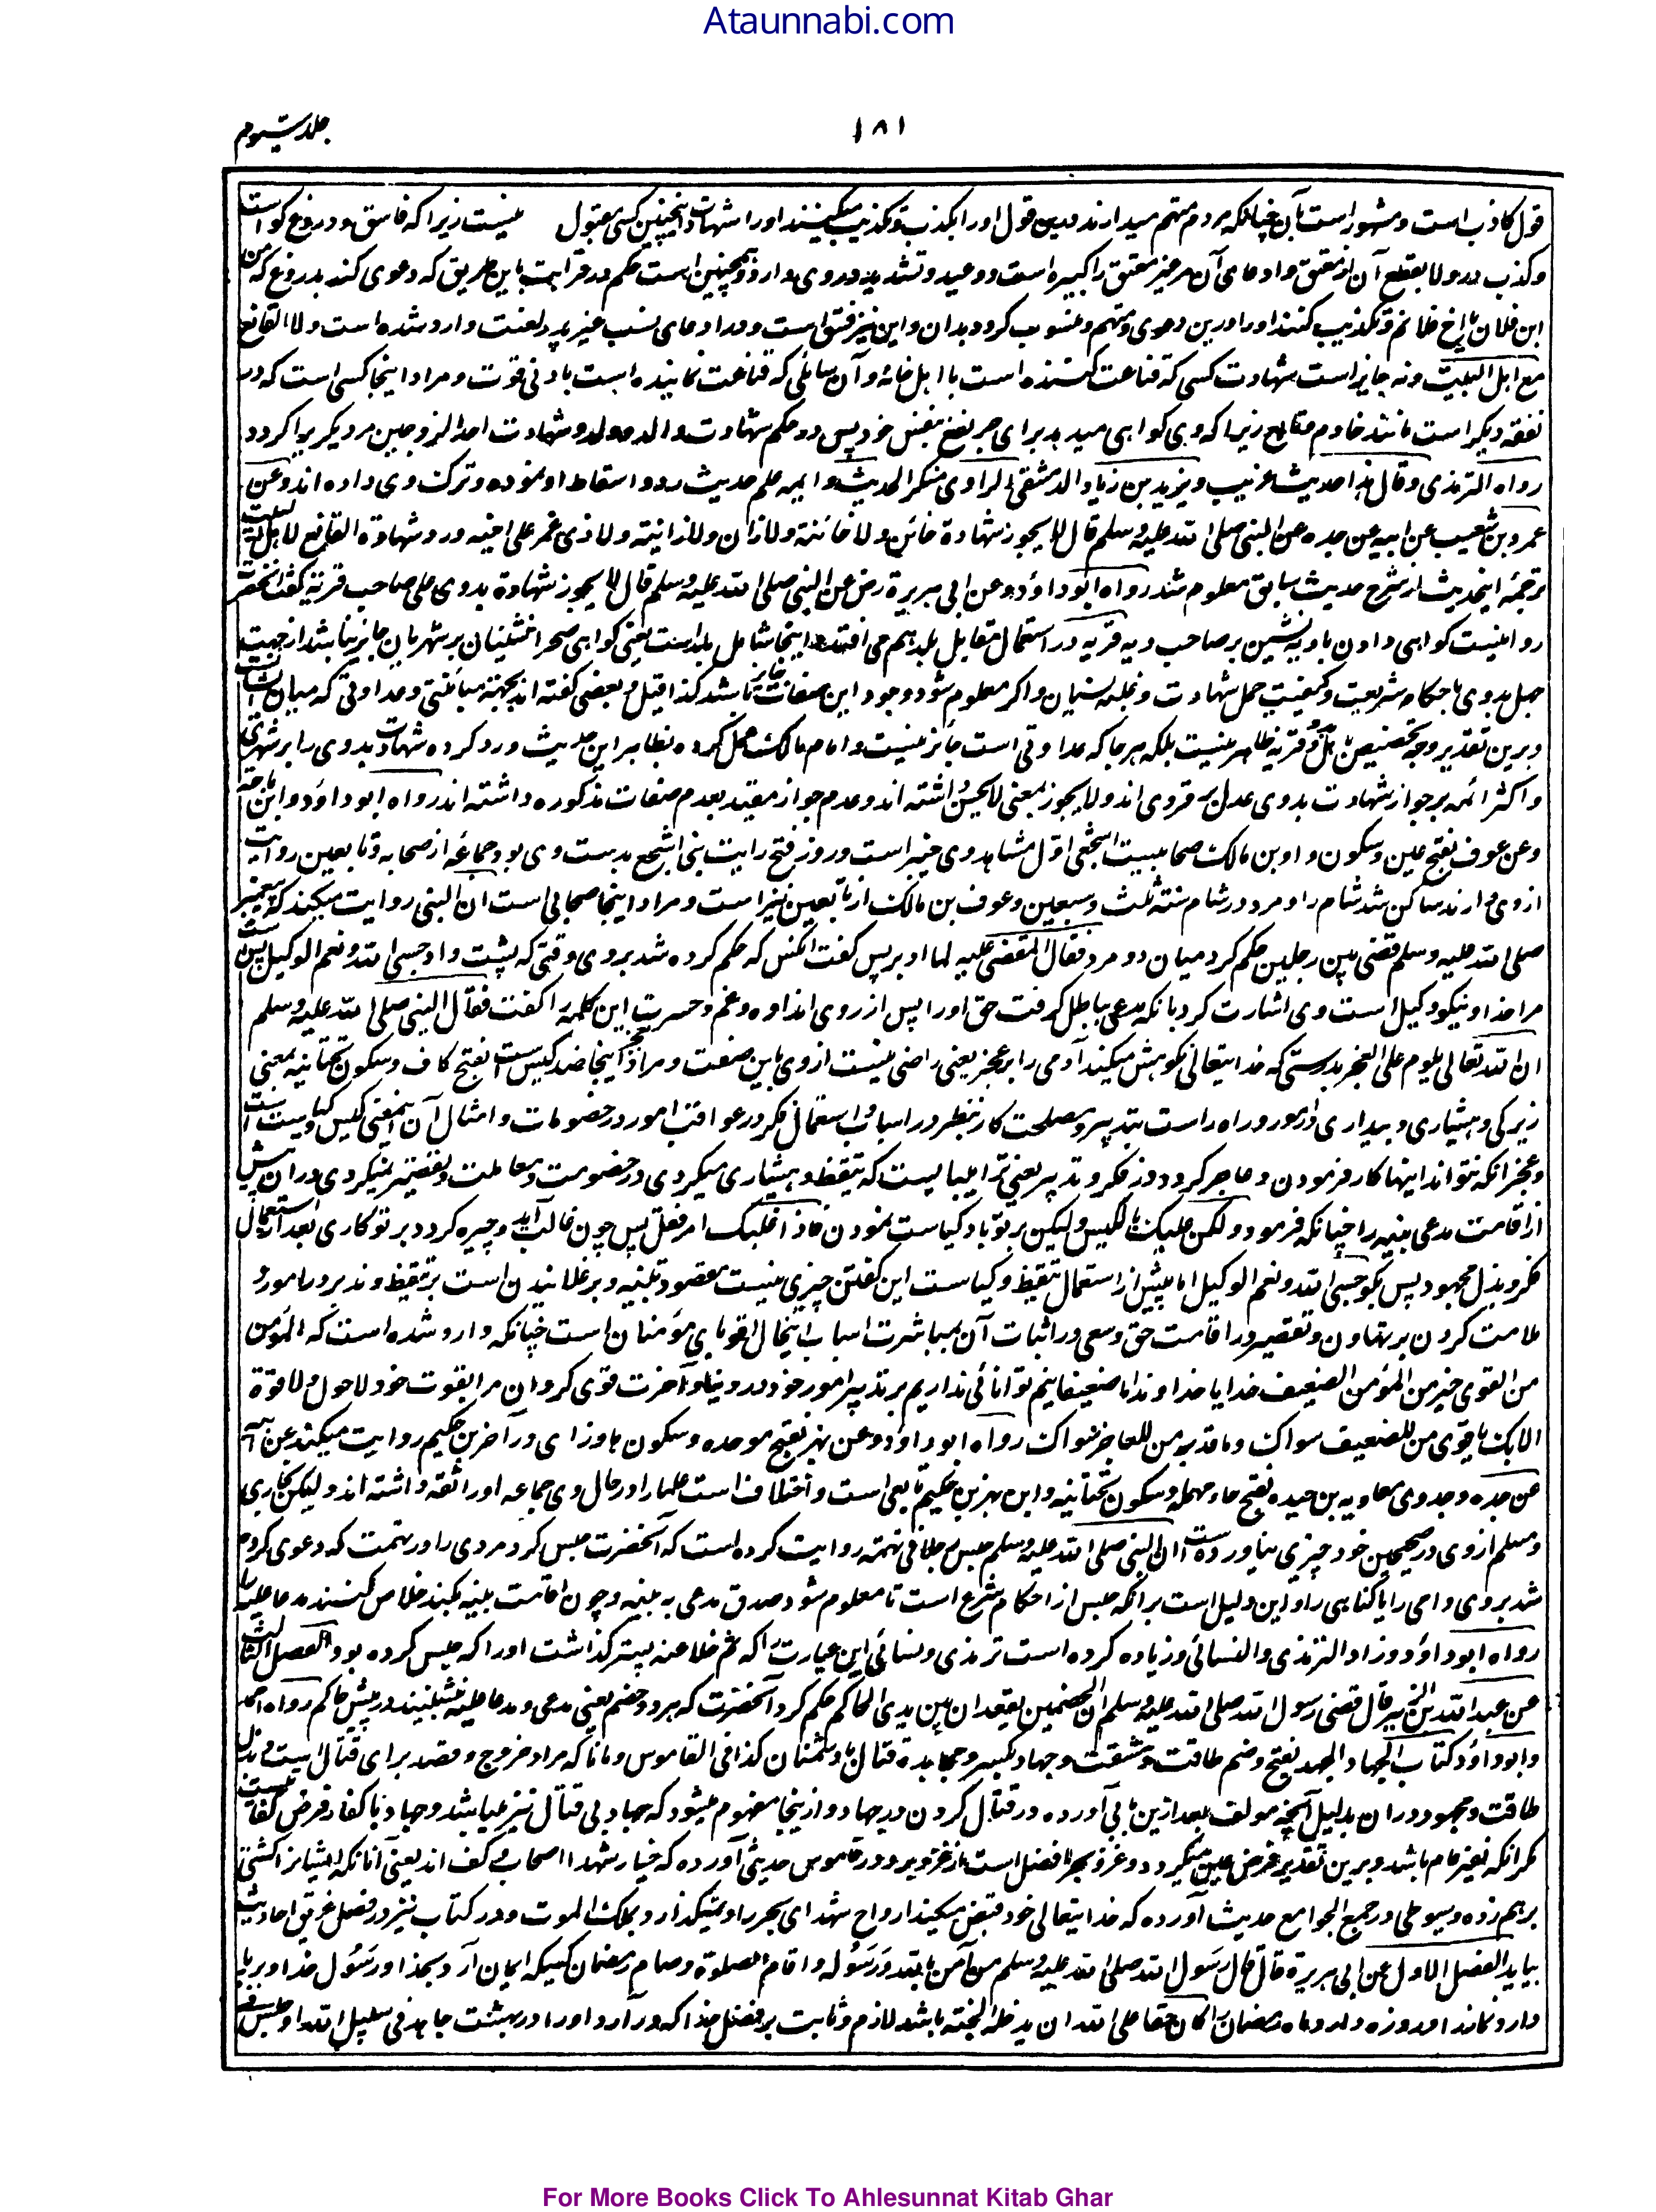 Ataunnabi.com
جلد سیوم
١٨١
قول کاذب است و مشهور است بآن چنانکه مردم متهم میدارند درین قول او را بکذب و تکذیب میکنند او را شهادت اینچنین کسی مقبول نیست زیرا که فاسق و دروغ گو است
و کذب در ولا بقطع آن از معتق و ادعای آن مر غیر معتق را کبیره است و وعید و تشدید در وی وارد و همچنین است حکم در قرابت باین طریق که دعوی کند بدروغ که من
ابن فلان یا اخ فلانم و تکذیب کنند او را درین دعوی و متهم و منسوب گردد بدان و این نیز فسق است و در ادعای نسب غیر پدر لعنت وارد شده است ولا القانع
مع اهل البیت و نه جایز است شهادت کسی که قناعت کننده است با اهل خانه و آن سائلی که قناعت نماینده است بادنی قوت و مراد اینجا کسی است که در
نفقه دیگر است مانند خادم و تابع زیرا که وی گواهی میدهد برای جر نفع بنفس خود پس در حکم شهادت والد مر ولد و شهادت احد الزوجین مر دیگریرا گردد
رواه الترمذی و قال هذا حدیث غریب و یزید بن زیاد الدمشقی الراوی منکر الحدیث و ایمه علم حدیث رد و اسقاط او نموده و ترک وی داده اند و عن
عمرو بن شعیب عن ابیه عن جده عن النبی صلی الله علیه وسلم قال لا یجوز شهادة خائن ولا خائنة ولا زان ولا زانیة ولا ذی غمر علی اخیه و رد شهادة القانع لاهل البیت
ترجمۀ اینحدیث از شرح حدیث سابق معلوم شد رواه ابو داؤد و عن ابی هریرة رض عن النبی صلی الله علیه وسلم قال لا یجوز شهادة بدوی علی صاحب قریة گفت آنحضرت
روا نیست گواهی دادن بادیه نشین بر صاحب دیه قریه در استعمال مقابل بلد هم می افتد و اینجا شامل بلد است یعنی گواهی صحرا نشینان بر شهریان جایز نباشد از جهت
جهل بدوی باحکام شریعت و کیفیت حمل شهادت و غلبه نسیان و اگر معلوم شود وجود این صفات جایز باشد کذا قیل و بعضی گفته اند بجهته مباینتی و عداوتی که میان ایشانست
و برین تقدیر وجه تخصیص باهل قریه ظاهر نیست بلکه هر جا که عداوتی است جائز نیست و امام مالک عمل کرده بظاهر این حدیث و رد کرده شهادت بدوی را بر شهری
و اکثر ائمه بر جواز شهادت بدوی عدل بر قروی اند و لا یجوز بمعنی لا یحسن داشته اند و عدم جواز مقید بعدم صفات مذکوره داشته اند رواه ابو داؤد و ابن ماجة
و عن عوف بفتح عین و سکون واو بن مالک صحابیست اشجعی اول مشاهد وی خیبر است و روز فتح رایت بنی اشجع بدست وی بود جماعه از صحابه و تابعین روایت
از وی دارند ساکن شد شام را و مرد در شام سنته ثلث و سبعین و عوف بن مالک از تابعین نیز است و مراد اینجا صحابی است ان النبی روایت میکند که پیغمبر
صلی الله علیه وسلم قضی بین رجلین حکم کرد میان دو مرد فقال المقضی علیه لما ادبر پس گفت آنکس که حکم کرده شد بر وی وقتی که پشت داد حسبی الله و نعم الوکیل بس است
مرا خدا و نیکو وکیل است وی اشارت کرد بآنکه مدعی بباطل گرفت حق او را پس از روی اندوه و غم و حسرت این کلمه را گفت فقال النبی صلی الله علیه وسلم
ان الله تعالی یلوم علی العجز بدرستی که خدایتعالی نکوهش میکند آدمی را بر عجز یعنی راضی نیست از وی باین صفت و مراد بعجز اینجا ضد کیس است بفتح کاف و سکون تحتانیه بمعنی
زیرکی و هشیاری و بیداری در امور و راه راست بتدبیر و مصلحت کار بنظر در اسباب و استعمال فکر در عواقب امور در خصومات و امثال آن بمعنی کیس کیاست است
و عجز آنکه نتواند اینها کار فرمودن و عاجز گردد در فکر و تدبیر یعنی ترا میبایست که تیقظ و هشیاری میکردی در خصومت و معاملت و تقصیر نمیکردی در آن پیش
از اقامت مدعی بینه را چنانکه فرمود و لکن علیک بالکیس و لیکن بر تو باد کیاست نمودن فاذا غلبک امر فقل پس چون غالب آید و چیره گردد بر تو کاری بعد استعمال
فکر و بذل مجهود پس بگو حسبی الله و نعم الوکیل اما پیش از استعمال تیقظ و کیاست این گفتن چیزی نیست مقصود تنبیه و برغلانیدن است بر تیقظ و تدبر در امور و
ملامت کردن بر تهاون و تقصیر در اقامت حق و سعی در اثبات آن بمباشرت اسباب اینحال اقویای مؤمنان است چنانکه وارد شده است که المؤمن
القوی خیر من المؤمن الضعیف خدایا خداوندا ما ضعیفانیم توانائی نداریم بر تدبیر امور خود در دنیا و آخرت قوی گردان مرا بقوت خود لا حول ولا قوة
الا بک یا قوی من للضعیف سواک و یا قدیر من للعاجز سواک رواه ابو داؤد و عن بهز بفتح موحده و سکون ها و زای در آخر بن حکیم روایت میکند عن ابیه
عن جده و جد وی معاویه بن حیده بفتح حاء مهمله و سکون تحتانیه و این بهز بن حکیم تابعی است و اختلاف است علما را در حال وی جماعه او را ثقه داشته اند و لیکن بخاری
و مسلم از وی در صحیحین خود چیزی نیاورده است ان النبی صلی الله علیه وسلم حبس رجلا فی تهمة روایت کرده است که آنحضرت حبس کرد مردی را در تهمت که دعوی کرده
شد بر وی دامی را یا گناهی را و این دلیل است بر آنکه حبس از احکام شرع است تا معلوم شود صدق مدعی به بینه و چون اقامت بینه نکند خلاص کنند مدعا علیه را
رواه ابو داؤد و زاد الترمذی و النسائی و زیاده کرده است ترمذی و نسائی این عبارت را که ثم خلا عنه پستر گذاشت او را که حبس کرده بود الفصل الثالث
عن عبد الله بن الزبیر قال قضی رسول الله صلی الله علیه وسلم ان الخصمین یقعدان بین یدی الحاکم حکم کرد آنحضرت که هر دو خصم یعنی مدعی و مدعا علیه بنشینند در پیش حاکم رواه احمد
و ابو داؤد کتاب الجهاد الجهد بفتح و ضم طاقت و مشقت و جهاد بکسر و مجاهدة قتال با دشمنان کذا فی القاموس و مانا که مراد خروج و قصد برای قتال است و بذل
طاقت و مجهود در آن بدلیل آنچه مولف بعد ازین بابی آورده در قتال کردن در جهاد و ازینجا مفهوم میشود که جهاد بی قتال نیز میباشد و جهاد با کفار فرض کفایت است
مگر آنکه نفیر عام باشد و برین تقدیر فرض عین میگردد و غزو بحر افضل است از غزو بر و در قاموس حدیثی آورده که خیار شهدا اصحاب کف اند یعنی آنانکه ایشانرا کشتی
برهم زده و سیوطی در جمع الجوامع حدیث آورده که خدایتعالی خود قبض میکند ارواح شهدای بحر را و نمیگذارد بملک الموت و در کتاب نیز در فضل غریق احادیث
بیاید الفصل الاول عن ابی هریرة قال قال رسول الله صلی الله علیه وسلم من آمن بالله و رسوله و اقام الصلوة و صام رمضان کسیکه ایمان آرد بخدا و رسول خدا و برپا
دارد نماز را و روزه دارد ماه رمضان را کان حقا علی الله ان یدخله الجنة باشد لازم و ثابت بر فضل خدا که در آرد او را در بهشت جاهد فی سبیل الله او جلس فی
For More Books Click To Ahlesunnat Kitab Ghar